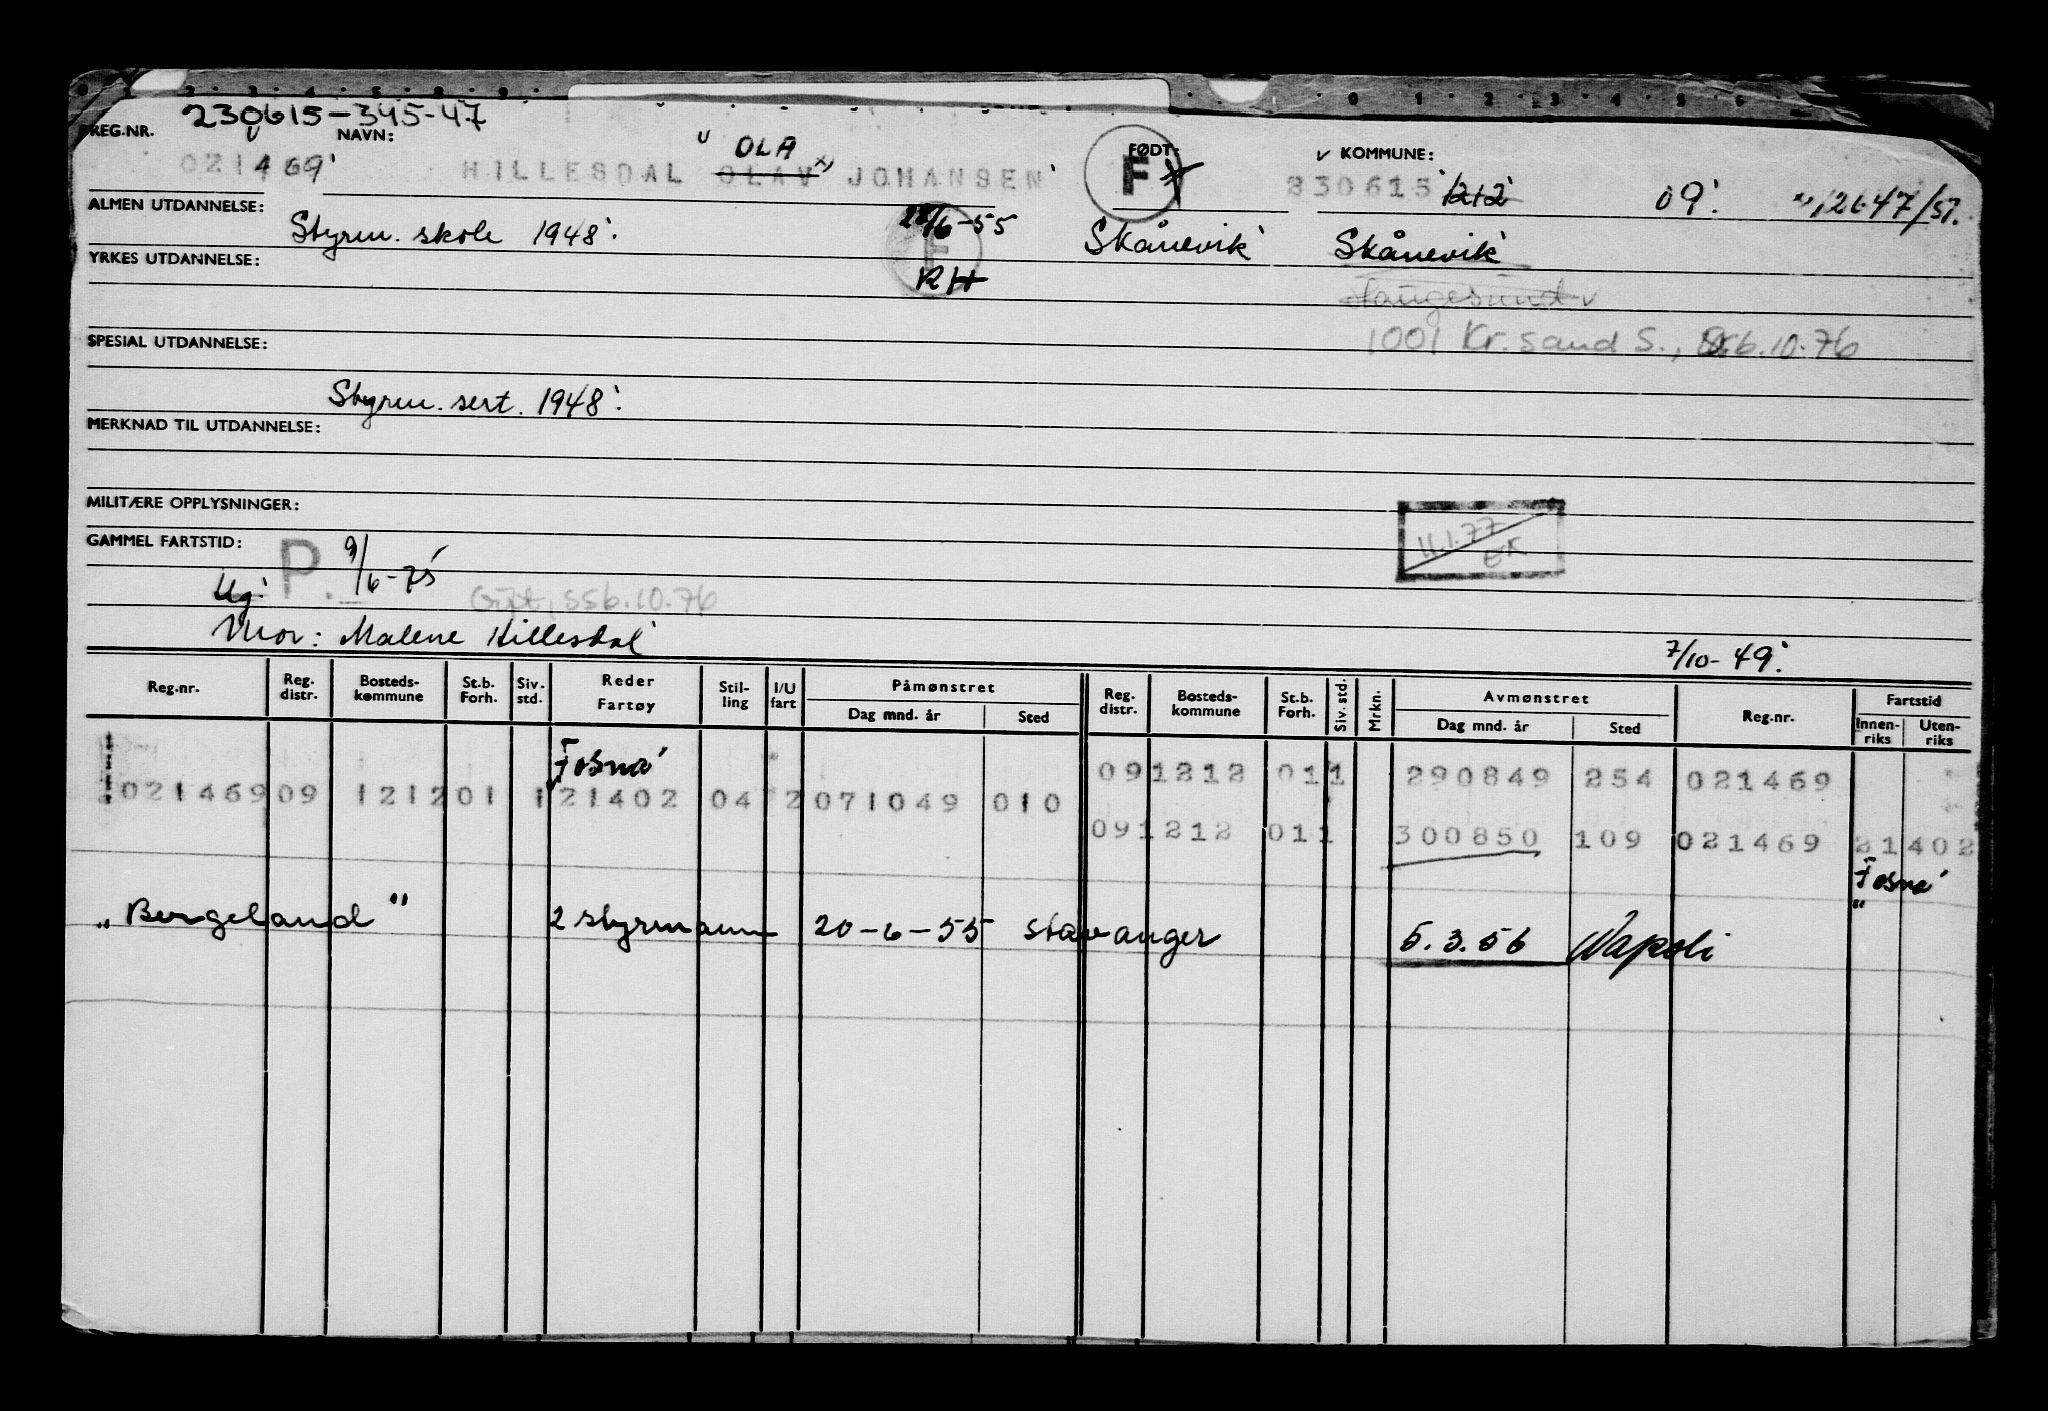 230615-345-47
REG.NR.
NAVN:
FØDT:
KOMMUNE:
OLA
021469
HILLESDAL OLAV JOHANSEN
F
230615
1212
09.
12647/51.
ALMEN UTDANNELSE:
Styrm. skole 1948.
F
/6-55
RH
Skånevik
Skånevik
YRKES UTDANNELSE:
Haugesund
1001 Kr.sand S., 6.10.76
SPESIAL UTDANNELSE:
Styrm. sert. 1948.
MERKNAD TIL UTDANNELSE:
MILITÆRE OPPLYSNINGER:
11.1.77
EK
GAMMEL FARTSTID:
P.
9/6-75
Ug.
Gift, ssb.10.76
Mor: Malene Hillesdal
7/10-49.
Reg.nr. Reg. distr. Bosteds-kommune St.b. Forh. Siv. std. Reder Fartøy Stil-ling I/U fart Påmønstret Dag mnd. år Sted Reg. distr. Bosteds-kommune St.b. Forh. Siv. std. Mrkn. Avmønstret Dag mnd. år Sted Reg.nr. Fartstid Innen-riks Uten-riks
Fosna
091212 011 290849 254 021469
021469 09 1212 01 1 21402 04 2 071049 010
091212 011 300850 109 021469 21402
Fosna
"Bergeland" 2 styrmann 20-6-55 Stavanger 5.3.56 Napoli